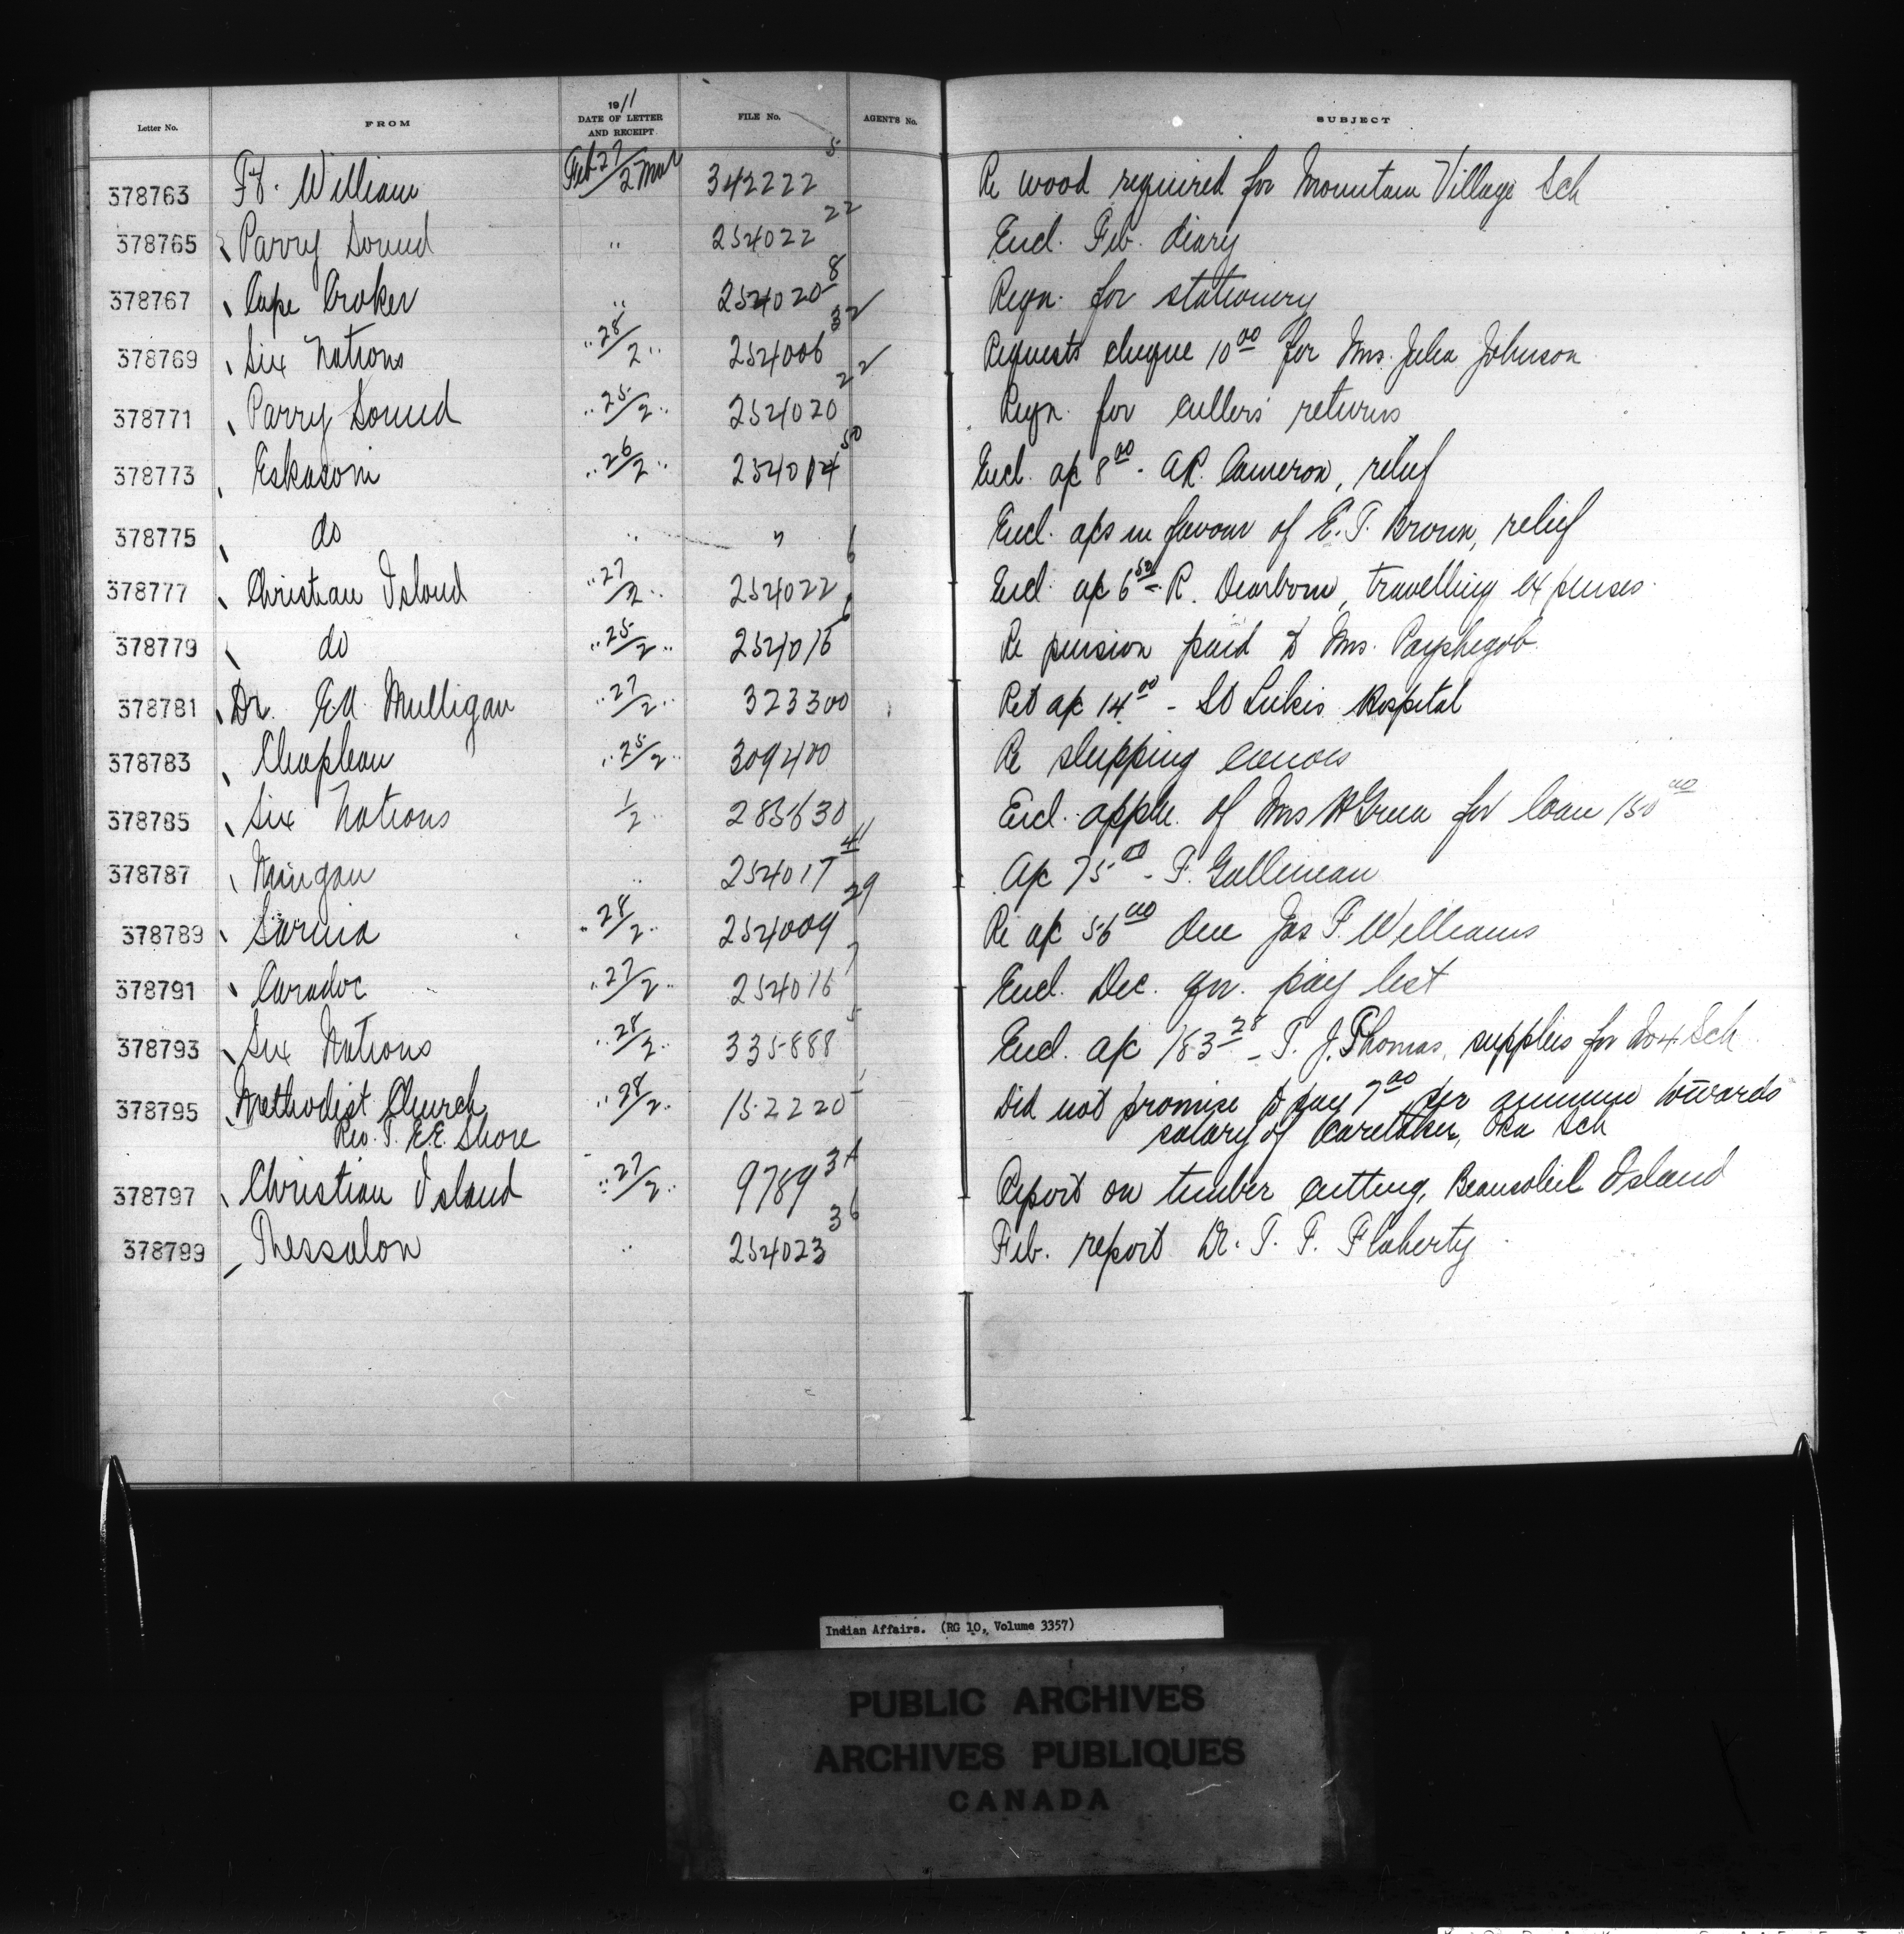 Letter No. FROM 1911 DATE OF LETTER AND RECEIPT FILE No. AGENT'S No. SUBJECT
378763 Ft. William Feb 27/2 Mar 342222 5 Re wood required for Mountain Village Sch
378765 Parry Sound " 254022 22 Encl. Feb. diary
378767 Cape Croker " 254020 8 Reqn. for stationery
378769 Six Nations " 28/2 " 254006 32 Requests cheque 10 00 for Mrs. Julia Johnson
378771 Parry Sound " 25/2 " 254020 22 Reqn. for cullers' returns
378773 Eskasoni " 26/2 " 254014 50 Encl. a/c 8 00 - A.R. Cameron, relief
378775 do " " Encl. a/cs in favour of E. T. Brown, relief
378777 Christian Island " 27/2 " 254022 6 Encl. a/c 6 50 - R. Dearborn, travelling expenses
378779 do " 25/2 " 254016 6 Re pension paid to Mrs.
378781 Dr. Ed. Mulligan " 27/2 " 323300 Ret a/c 14 00 - St Lukes Hospital
378783 Chapleau " 25/2 " 309400 Re shipping canoes
378785 Six Nations 1/2 " 285630 Encl. appln. of Mrs Green for loan 150 00
378787 Mingan " 254017 4 A/c 75 00 - F. Gallienean
378789 Sarnia " 28/2 " 254009 29 Re a/c 56 00 due Jas F. Williams
378791 Caradoc " 27/2 " 254016 7 Encl. Dec. qr. pay list
378793 Six Nations " 28/2 " 335888 5 Encl. a/c 183 28 - T. J. Thomas, supplies for No 4 Sch
378795 Methodist Church " 28/2 " 152220 Did not promise to pay 7 00 per annum towards
Rev. T. E.E. Shore salary of Caretaker, Oka Sch
378797 Christian Island " 27/2 " 9789 Report on timber cutting, Beausoleil Island
378799 Thessalon " 254023 36 Feb. report Dr. T. F. Flaherty
Indian Affairs. (RG 10, Volume 3357)
PUBLIC ARCHIVES
ARCHIVES PUBLIQUES
CANADA